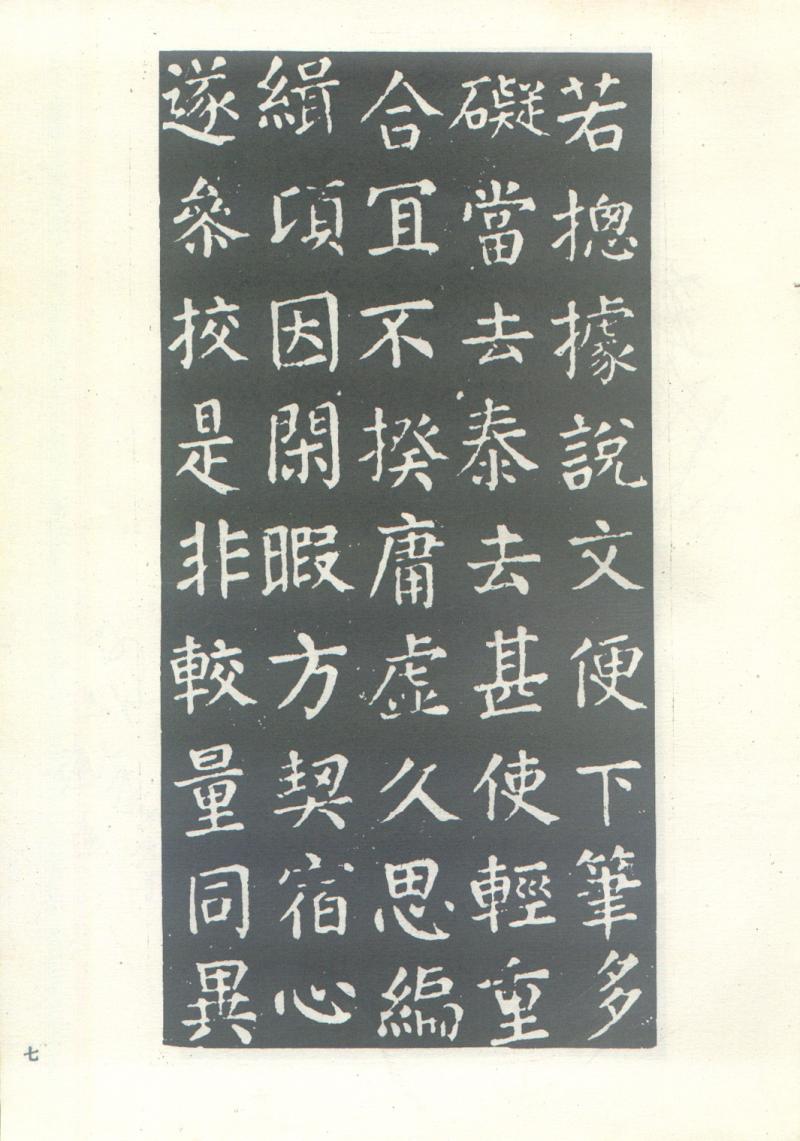 若揔據說文便下筆多
礙當去泰去甚使輕重
合冝不揆庸虛久思編
緝頃因閑暇方契宿心
遂叅挍是非較量同異
七